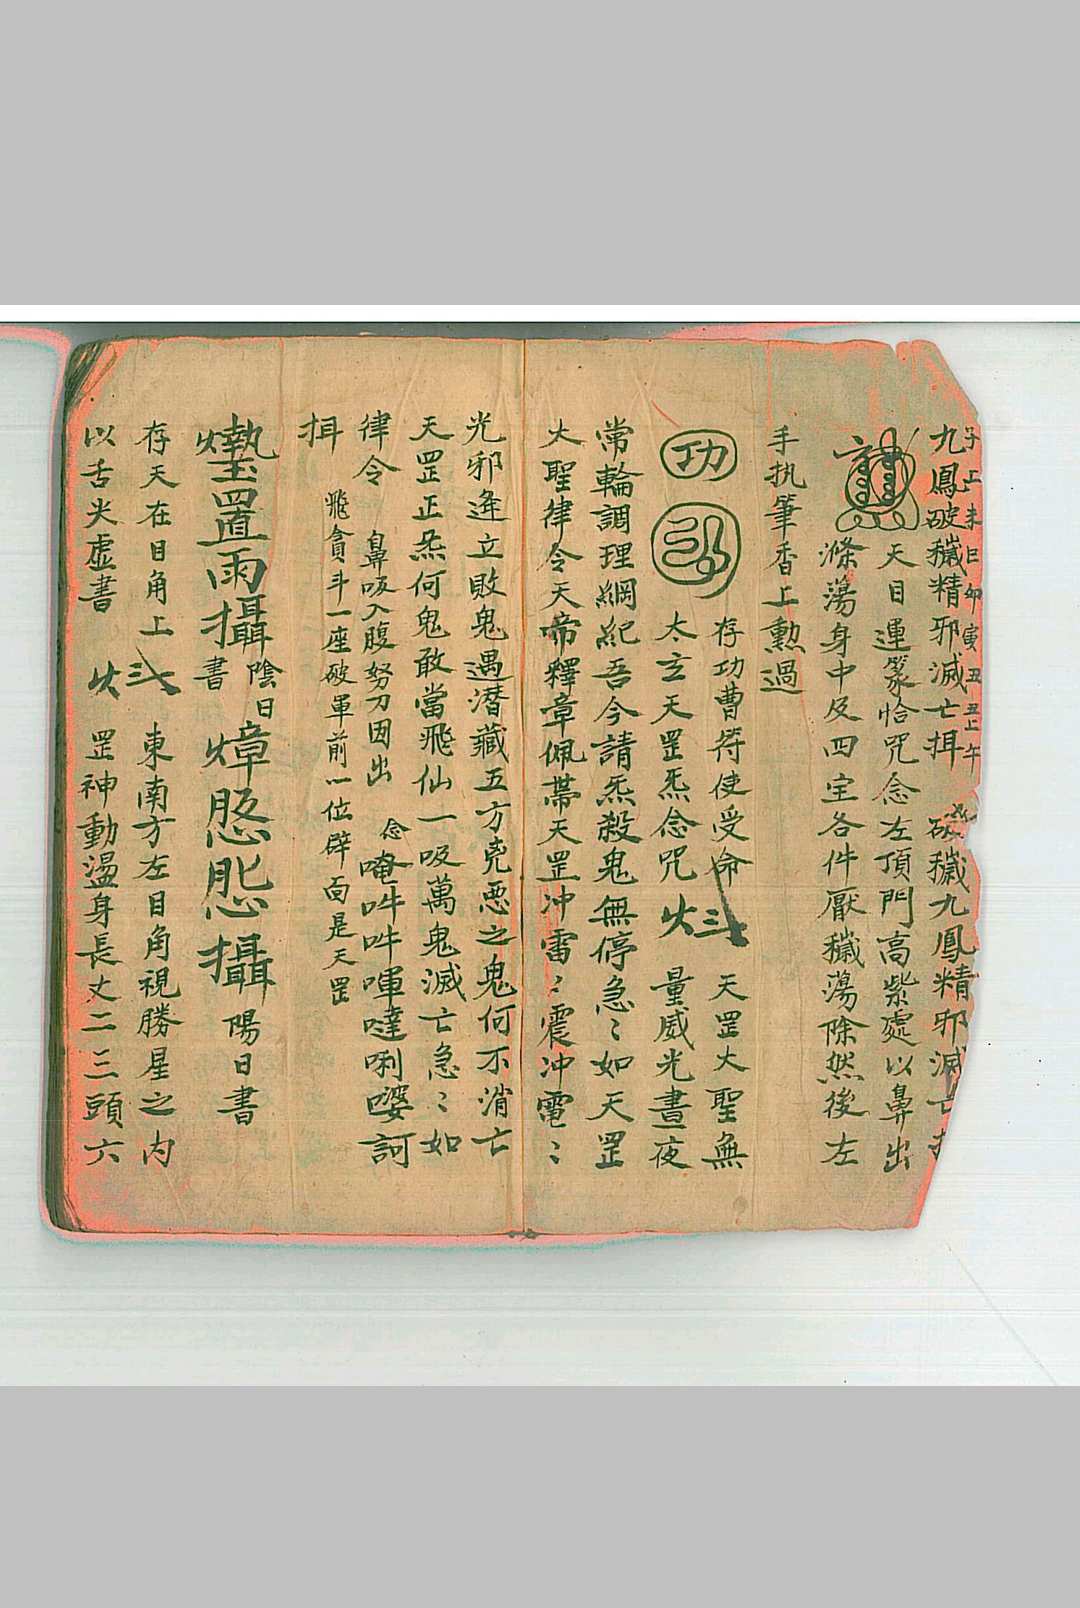 子上未巳卯寅丑丑上午
九鳳破穢精邪滅亡挕 破穢九鳳精邪滅亡
天目運篆恰咒念左頂門高紫處以鼻出
滌蕩身中及四宝各件厭穢蕩除然後左
手执筆香上勲過
功
存功曹符使受命 天罡大聖無
太玄天罡炁念咒 火 量威光晝夜
常輪調理綱紀吾今請炁殺鬼無停急〻如天罡
大聖律令天帝釋章佩帶天罡冲雷〻震冲電〻
光邪逄立敗鬼遇潜藏五方兇惡之鬼何不消亡
天罡正炁何鬼敢當飛仙一吸萬鬼滅亡急〻如
律令 鼻吸入腹努刀因出 念唵吽吽㖶噠唎㜑訶
挕 飛貪斗一座破軍前一位辟面是天罡
罝雨攝 陰日書 熞 攝 陽日書
存天在目角上 東南方左目角視勝星之内
以舌尖虛書 火 罡神動盪身長丈二三頭六